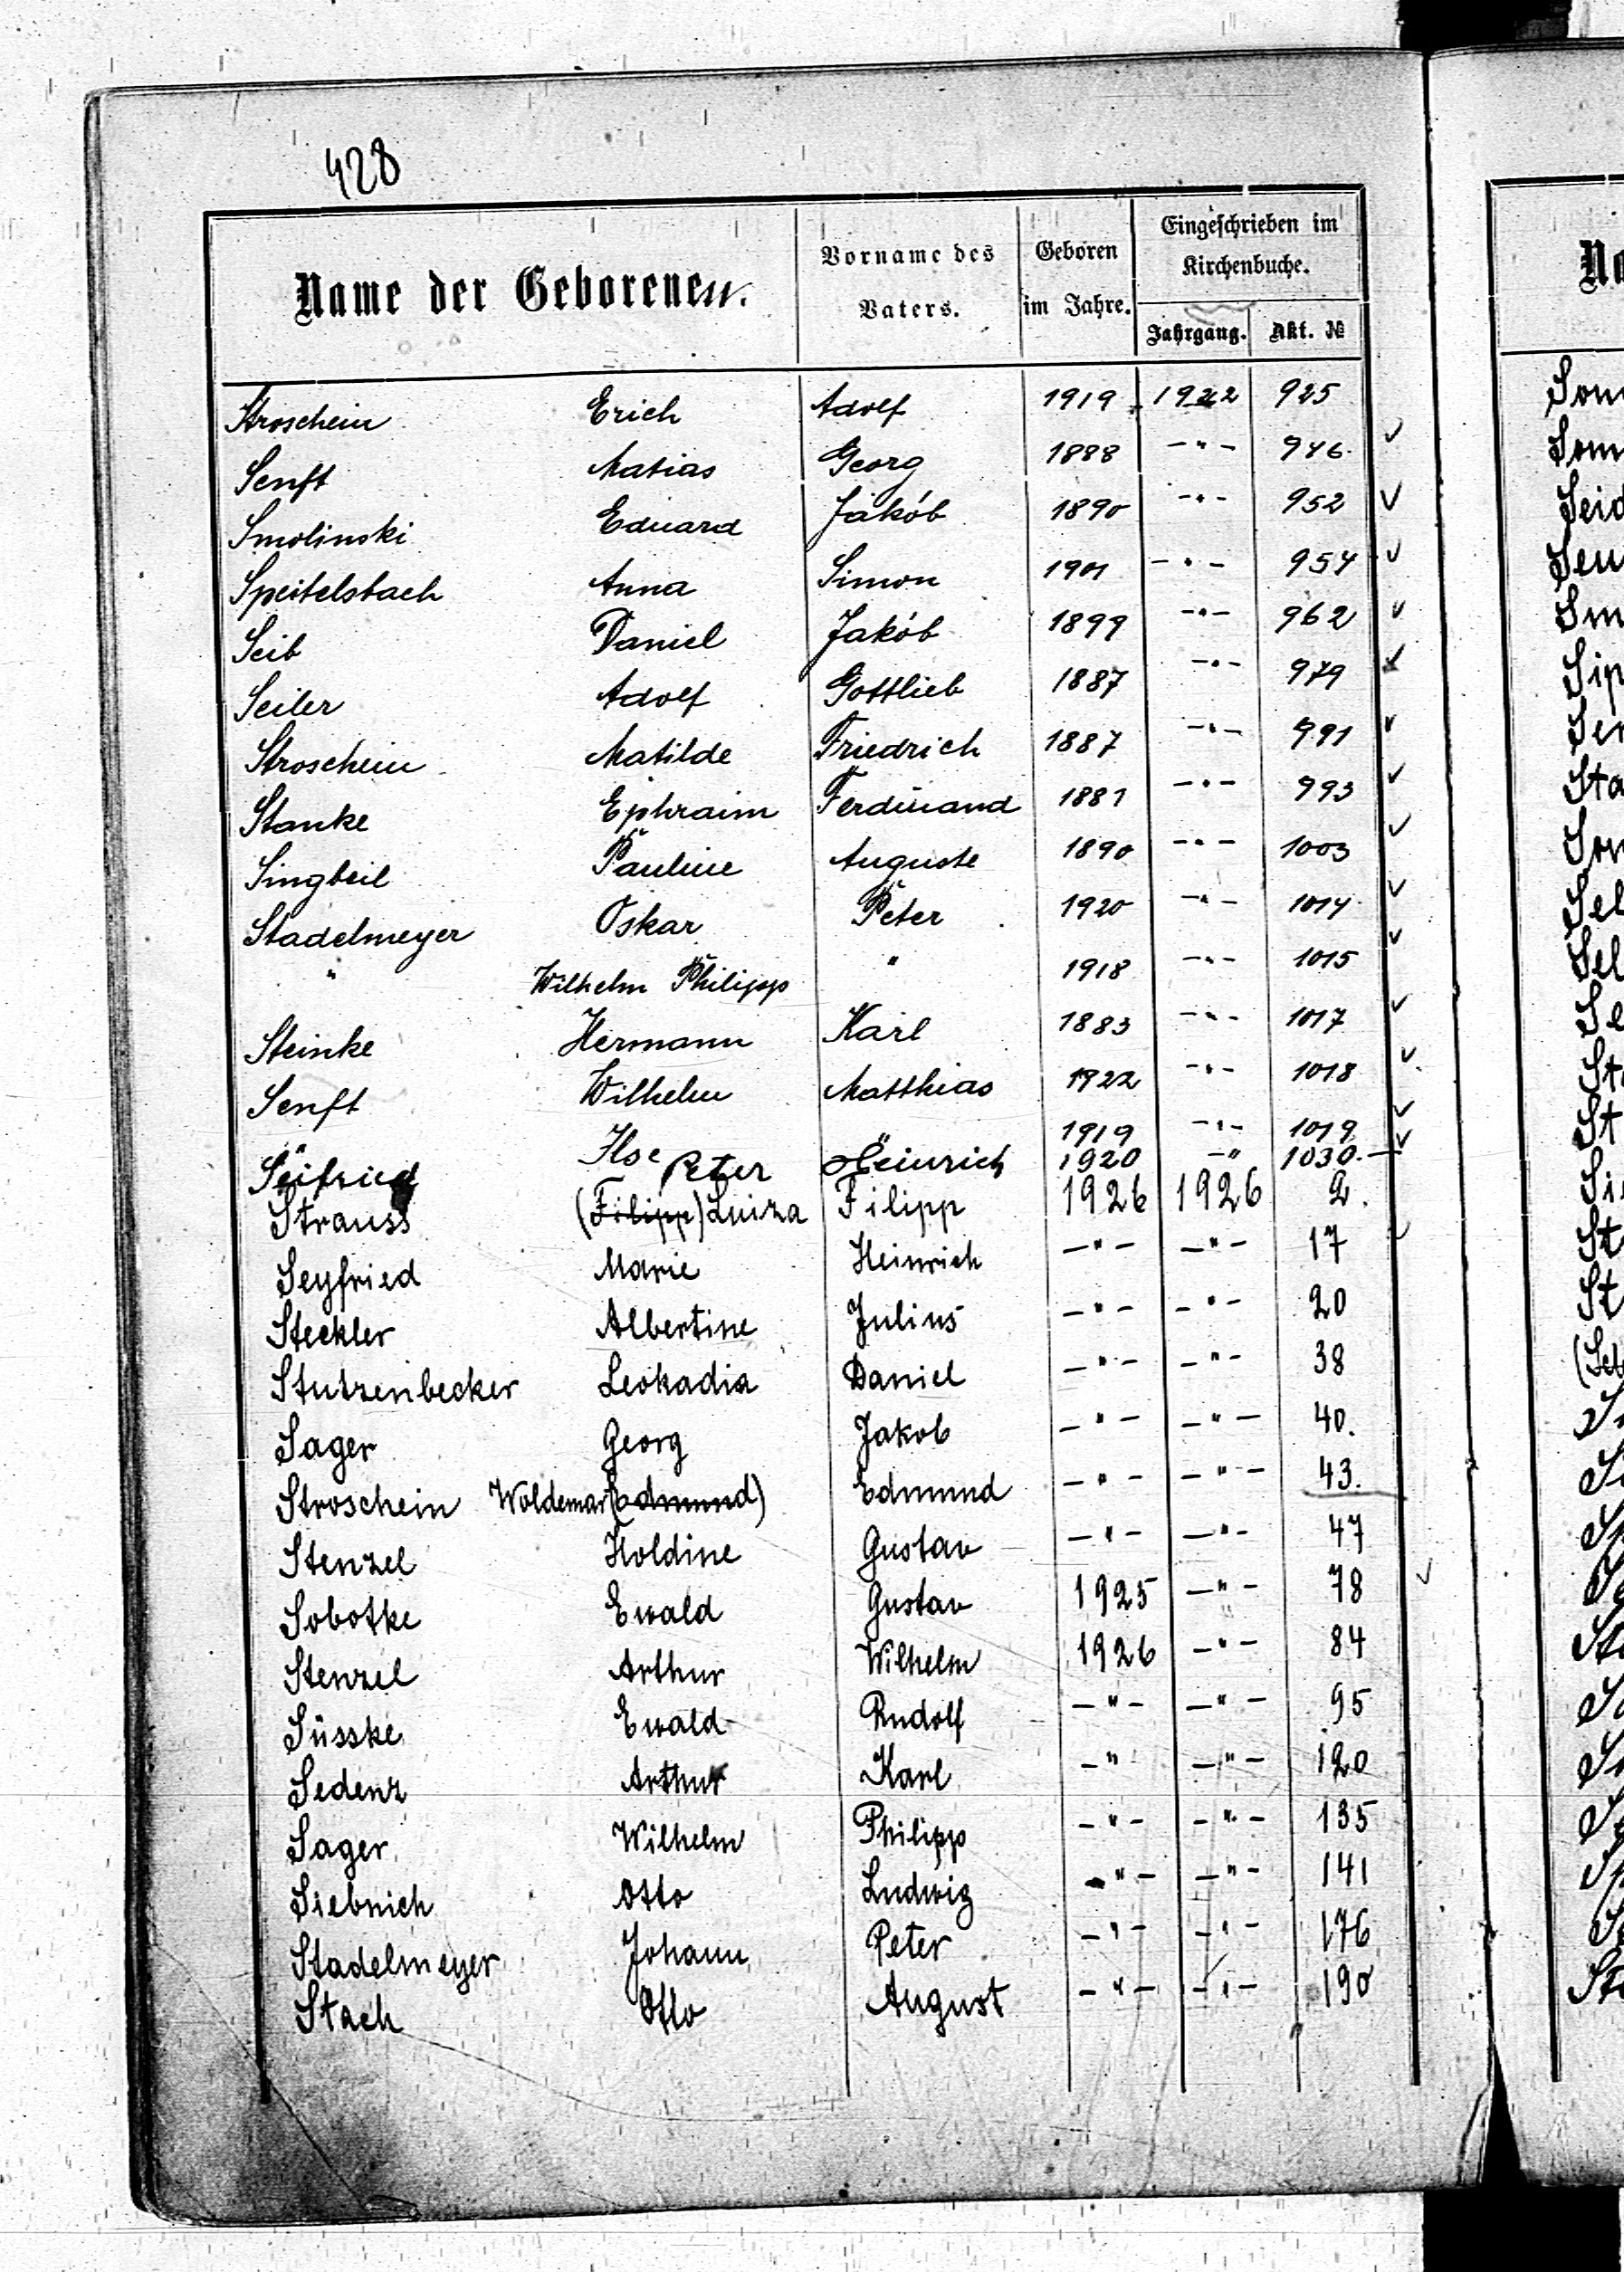 428
Name der Geborenen.
Vorname des Vaters.
Geboren im Jahre.
Eingeschrieben im Kirchenbuche.
Jahrgang. Akt. №
Stroschein Erich Adolf 1919 1922 925
Senft Matias Georg 1888 -"- 946.
Smolinski Eduard Jakób 1890 -"- 952
Speitelsbach Anna Simon 1901 -"- 954
Seib Daniel Jakób 1899 -"- 962
Seiler Adolf Gottlieb 1887 -"- 979
Stroschein Matilde Friedrich 1887 -"- 991
Stanke Ephraim Ferdinand 1881 -"- 993
Singbeil Pauline Auguste 1890 -"- 1003
Stadelmeyer Oskar Peter 1920 -"- 1014
" Wilhelm Philipp " 1918 -"- 1015
Steinke Hermann Karl 1883 -"- 1017
Senft Wilhelm Matthias 1922 -"- 1018
Ilse 1919 -"- 1019
Seifried Peter Heinrich 1920 -" 1030.
Strauss (Filipp) Luiza Filipp 1926 1926 2.
Seyfried Marie Heinrich -"- -"- 17
Steckler Albertine Julius -"- -"- 20
Stutzenbecker Leokadia Daniel -"- -"- 38
Sager Georg Jakob -"- -"- 40.
Stroschein Woldemar (Edmund) Edmund -"- -"- 43.
Stenzel Holdine Gustav -"- -"- 47
Sobotke Ewald Gustav 1925 -"- 78
Stenzel Arthur Wilhelm 1926 -"- 84
Süsske Ewald Rudolf -"- -"- 95
Sedenz Arthur Karl -" -"- 120
Sager Wilhelm Philipp -"- -"- 135
Siebnich Otto Ludwig -"- -"- 141
Stadelmeyer Johann Peter -"- -"- 176
Stach Otto August -"- -"- 190